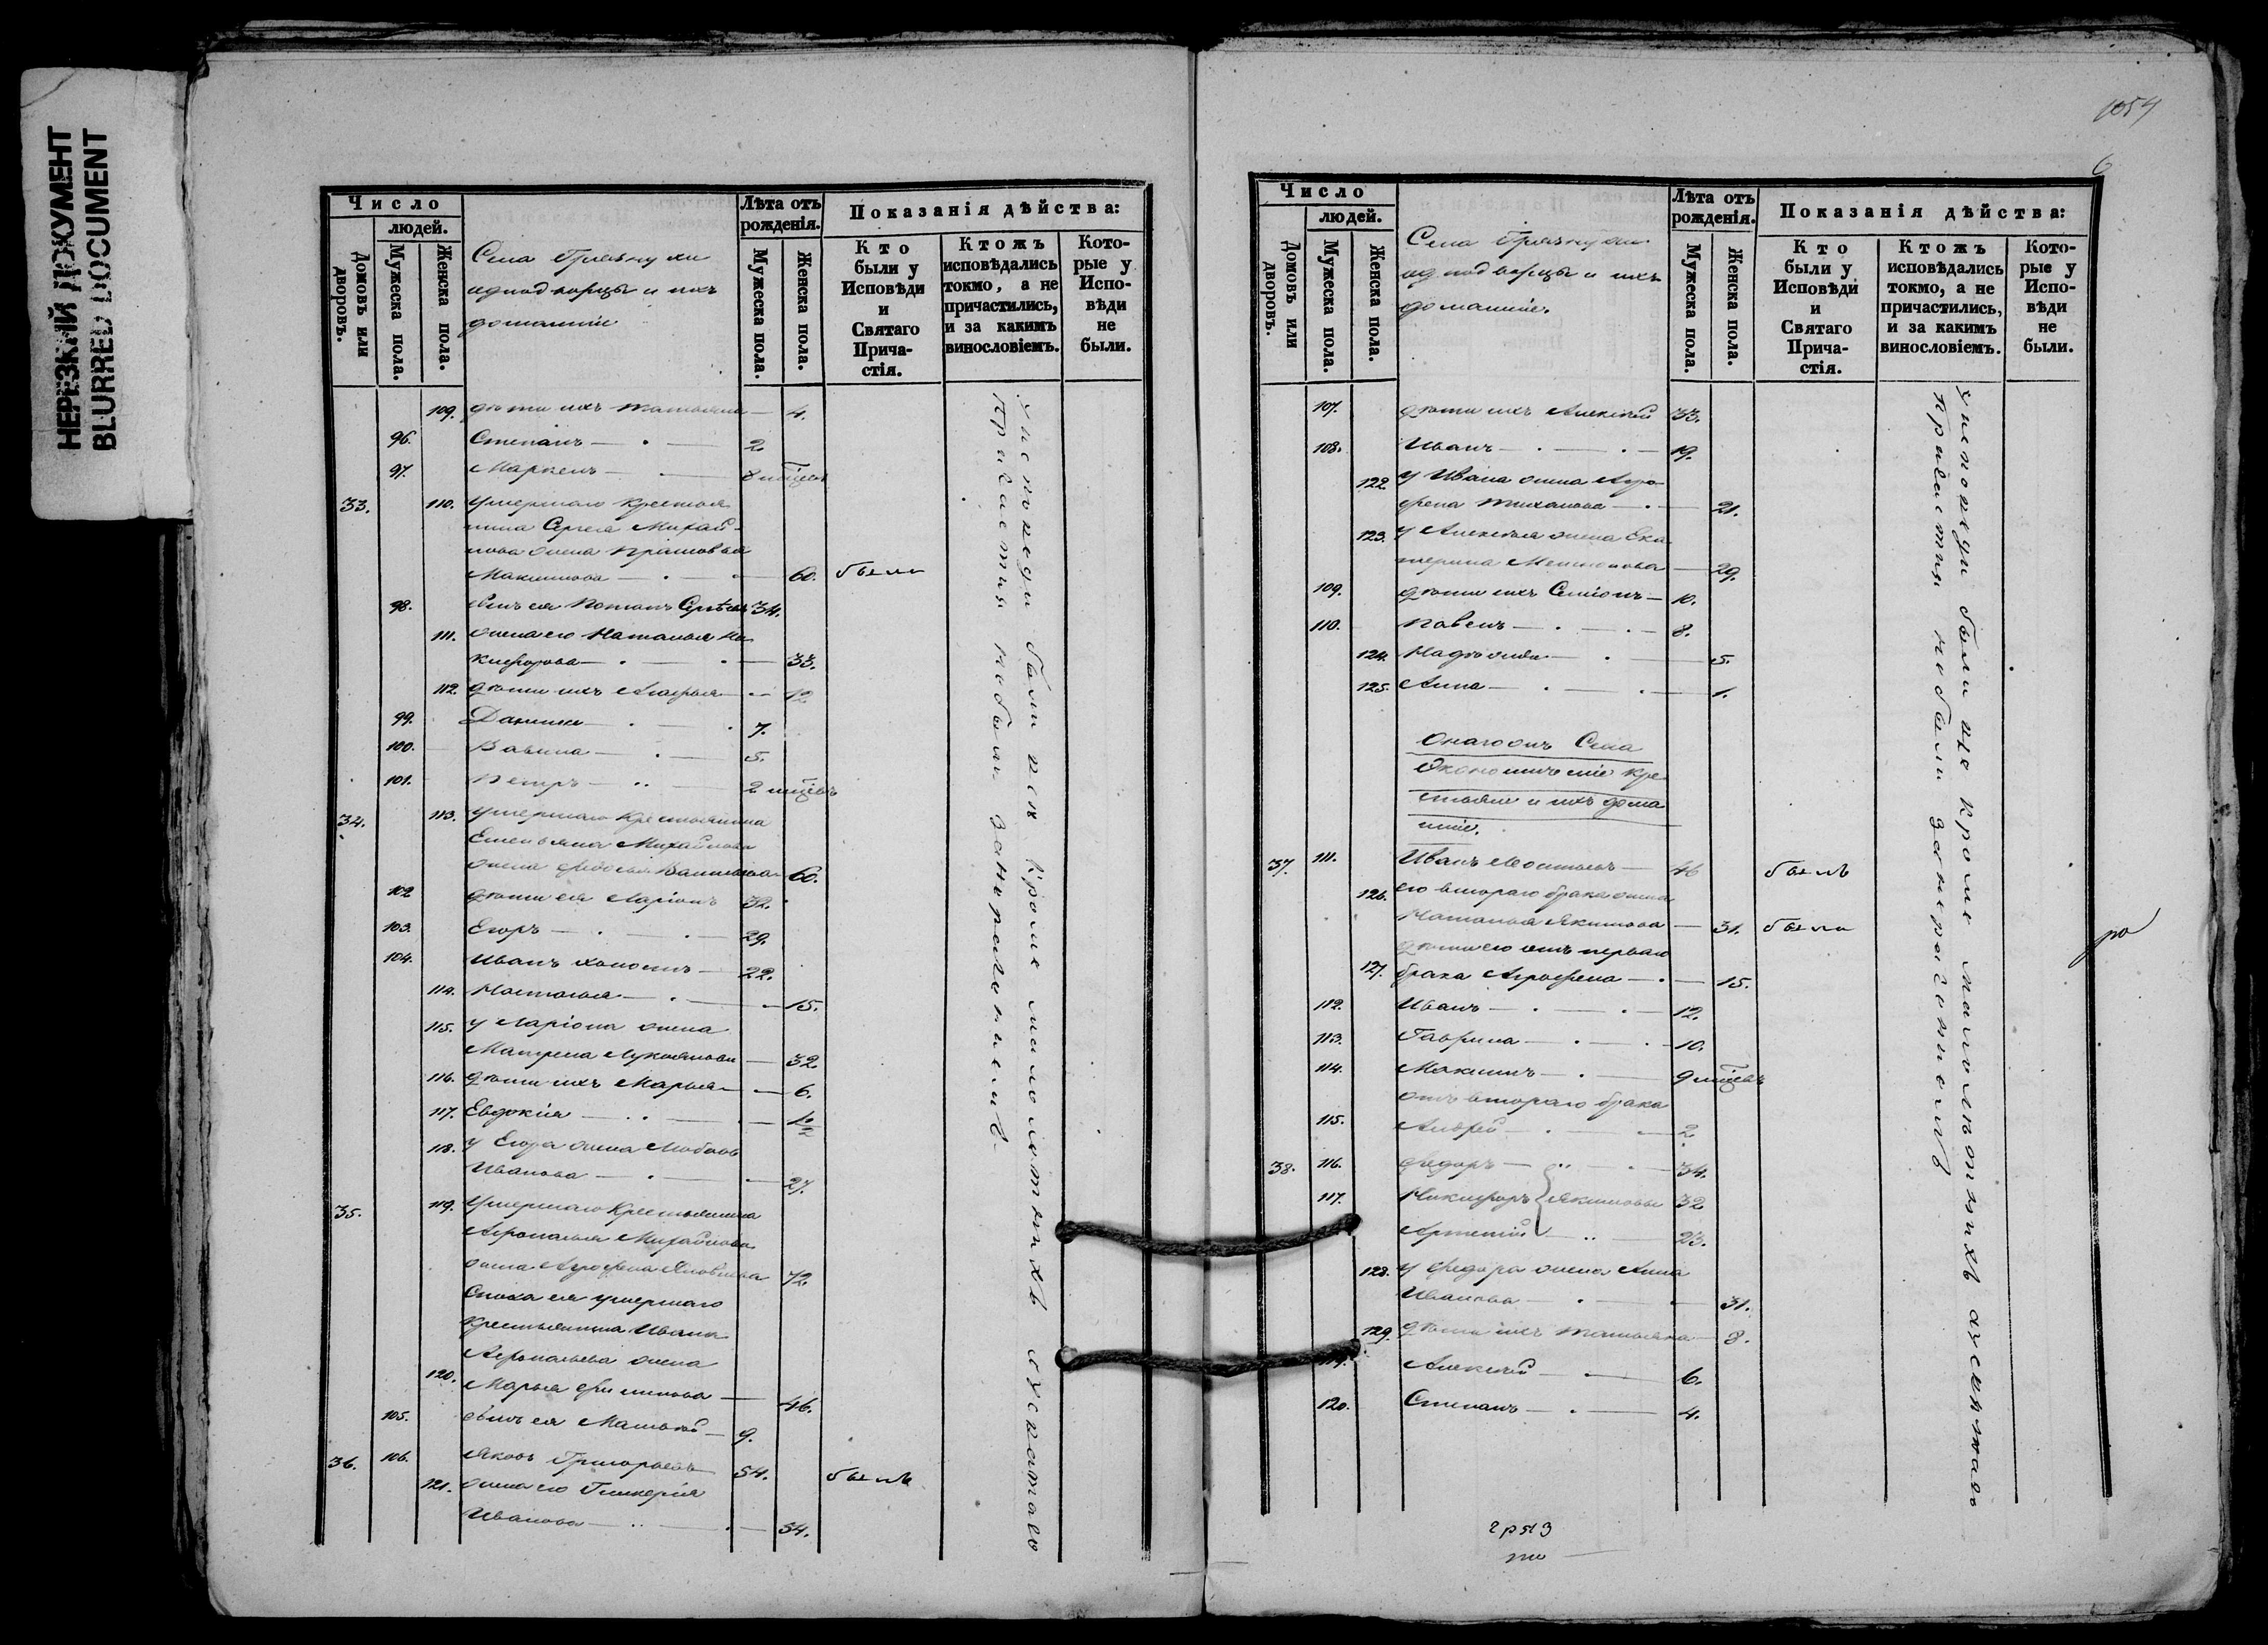 НЕРЕЗКИЙ ДОКУМЕНТ
BLURRED DOCUMENT
Число
людей.
Домовъ или дворовъ.
Мужеска пола.
Женска пола.
Села Грязнухи
однодворцы и ихъ
домашніе
Лѣта отъ рожденія.
Мужеска пола.
Женска пола.
Показанія дѣйства:
Кто были у Исповѣди и Святаго Причастія.
Ктожъ исповѣдались токмо, а не причастились, и за какимъ винословіемъ.
Которые у Исповѣди не были.
109. дѣти ихъ Татьяна 4.
96. Степанъ 2.
97. Маркелъ 8 мѣсцевъ
33. 110. Умершаго крестья
нина Сергея Михай-
лова жена Прасковья
Максимова 60. были
98. сынъ ея Потапъ Сергѣевъ 34.
111. жена его Наталья Ни
кифорова 33.
112. дѣти ихъ Агафья 12
99. Данила 7.
100. Вавила 5.
101. Петръ 2 мѣсцевъ
34. 113. Умершаго крестьянина
Емельяна Михайлова
жена Федосья Васильева 60.
102 дѣти ея Ларіонъ 32.
103. Егоръ 29.
104. Иванъ холостъ 22.
114. Наталья 15.
115. у Ларіона жена
Матрена Лукьянова 32.
116. дѣти ихъ Марья 6.
117. Евдокія
118. у Егора жена Любовь
Иванова 27.
35. 119. Умершаго крестьянина
Михайлова
жена Агрофена 72.
Сноха ея умершаго
крестьянина Ивана
жена
120. Марья 46.
105. сынъ ея Матвѣй 9.
36. 106. Яковъ Григорьевъ 54. былъ
121. жена его Гликерія
Иванова 54.
У исповѣди были все кроме малолѣтнихъ а у святаго
причастія небыли за нераченіемъ
1054
6
Число
людей.
Домовъ или дворовъ.
Мужеска пола.
Женска пола.
Села Грязнухи
однодворцы и ихъ
домашніе.
Лѣта отъ рожденія.
Мужеска пола.
Женска пола.
Показанія дѣйства:
Кто были у Исповѣди и Святаго Причастія.
Ктожъ исповѣдались токмо, а не причастились, и за какимъ винословіемъ.
Которые у Исповѣди не были.
107. дѣти ихъ Алексѣй 33.
108. Иванъ 19.
122. у Ивана жена Агро
фена Тиханова 21.
123. у Алексѣя жена Ека
терина 29.
109. дѣти ихъ Симіонъ 10.
110. Павелъ 8.
124. Надѣжда 5.
125. Анна 1.
Онагожъ Села
Экономическіе кре
стьяне и ихъ дома
шніе.
37. 111. Иванъ 46 былъ
126. его втораго брака жена
Наталья Якимова 31. были
дѣти его отъ перваго
127. брака Агрофена 15.
112. Иванъ 12.
113. Гаврила 10.
114. Максимъ 9 мѣсцевъ
отъ втораго брака
115. Андрей 2.
38. 116. Федоръ 34.
117. Никифоръ Якимовы 32
Артемій 23.
128. у Федора жена Анна
Иванова 31.
129. дѣти ихъ Татьяна 8.
119. Алексѣй 6.
120. Степанъ 4.
У исповѣди были все кроме малолѣтнихъ
причастія не были за нераченіемъ